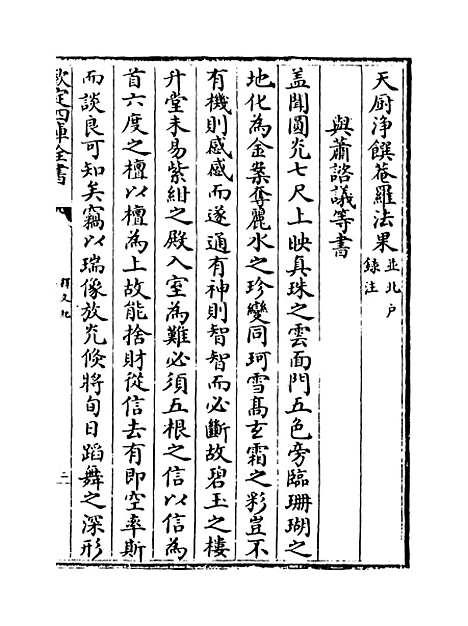 天厨淨饌菴羅法果並北户錄注
與蕭諮議等書
盖聞圓光七尺上映真珠之雲面門五色旁臨珊瑚之
地化為金案奪麗水之珍變同珂雪髙玄霜之彩豈不
有機則感感而遂通有神則智智而必斷故碧玉之樓
升堂未易紫紺之殿入室為難必須五根之信以信為
首六度之檀以檀為上故能捨財從信去有即空率斯
而談良可知矣竊以瑞像放光倏將旬日蹈舞之深形
欽定四庫全書
釋文紀
二